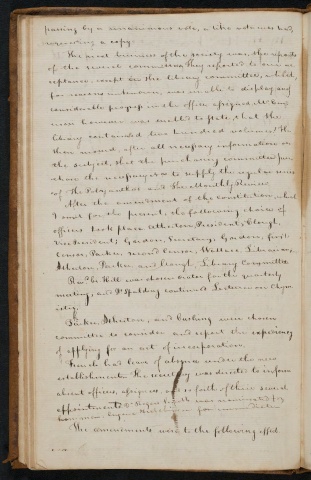 passing by a unanimous vote, a like vote was had
requesting a copy.
The next business of the society was, the reports
of the several committees. They reported to own ac
ceptance, except the library committee, which,
for reasons unknown, was unable to display any
considerable progress in the office assigned. Mr King
man however was enabled to state, that the
library contained two hundred volumes. He
then moved, after all necessary information on
the subject, that the purchasing committee pur
chase the necessary nos to supply the regular series
of The Port and the Monthly Review.
After the amendment of the constitution, which
I omit for the present, the following choice of
officers took place Atherton President, Clough,
Vice President, Gordon, Secretary, Gordon, first
Censor, Parker, second Censor, Wallace, Librarian,
Atherton, Parker, and Clough, Library Committee
Revd. Mr. Hill was chosen orator for the quarterly
meeting, and Dr Spalding continued Lecturer on Chym
istry.
Parker, Atherton, and Cushing were chosen
committee to consider and report the expediency
of applying for an act of incorporation.
French had leave of absence under the new
establishment. The secretary was directed to inform
absent officers, assignees, and so forth of their several
appointments. was nominated for
for
The amendments were to the following effect